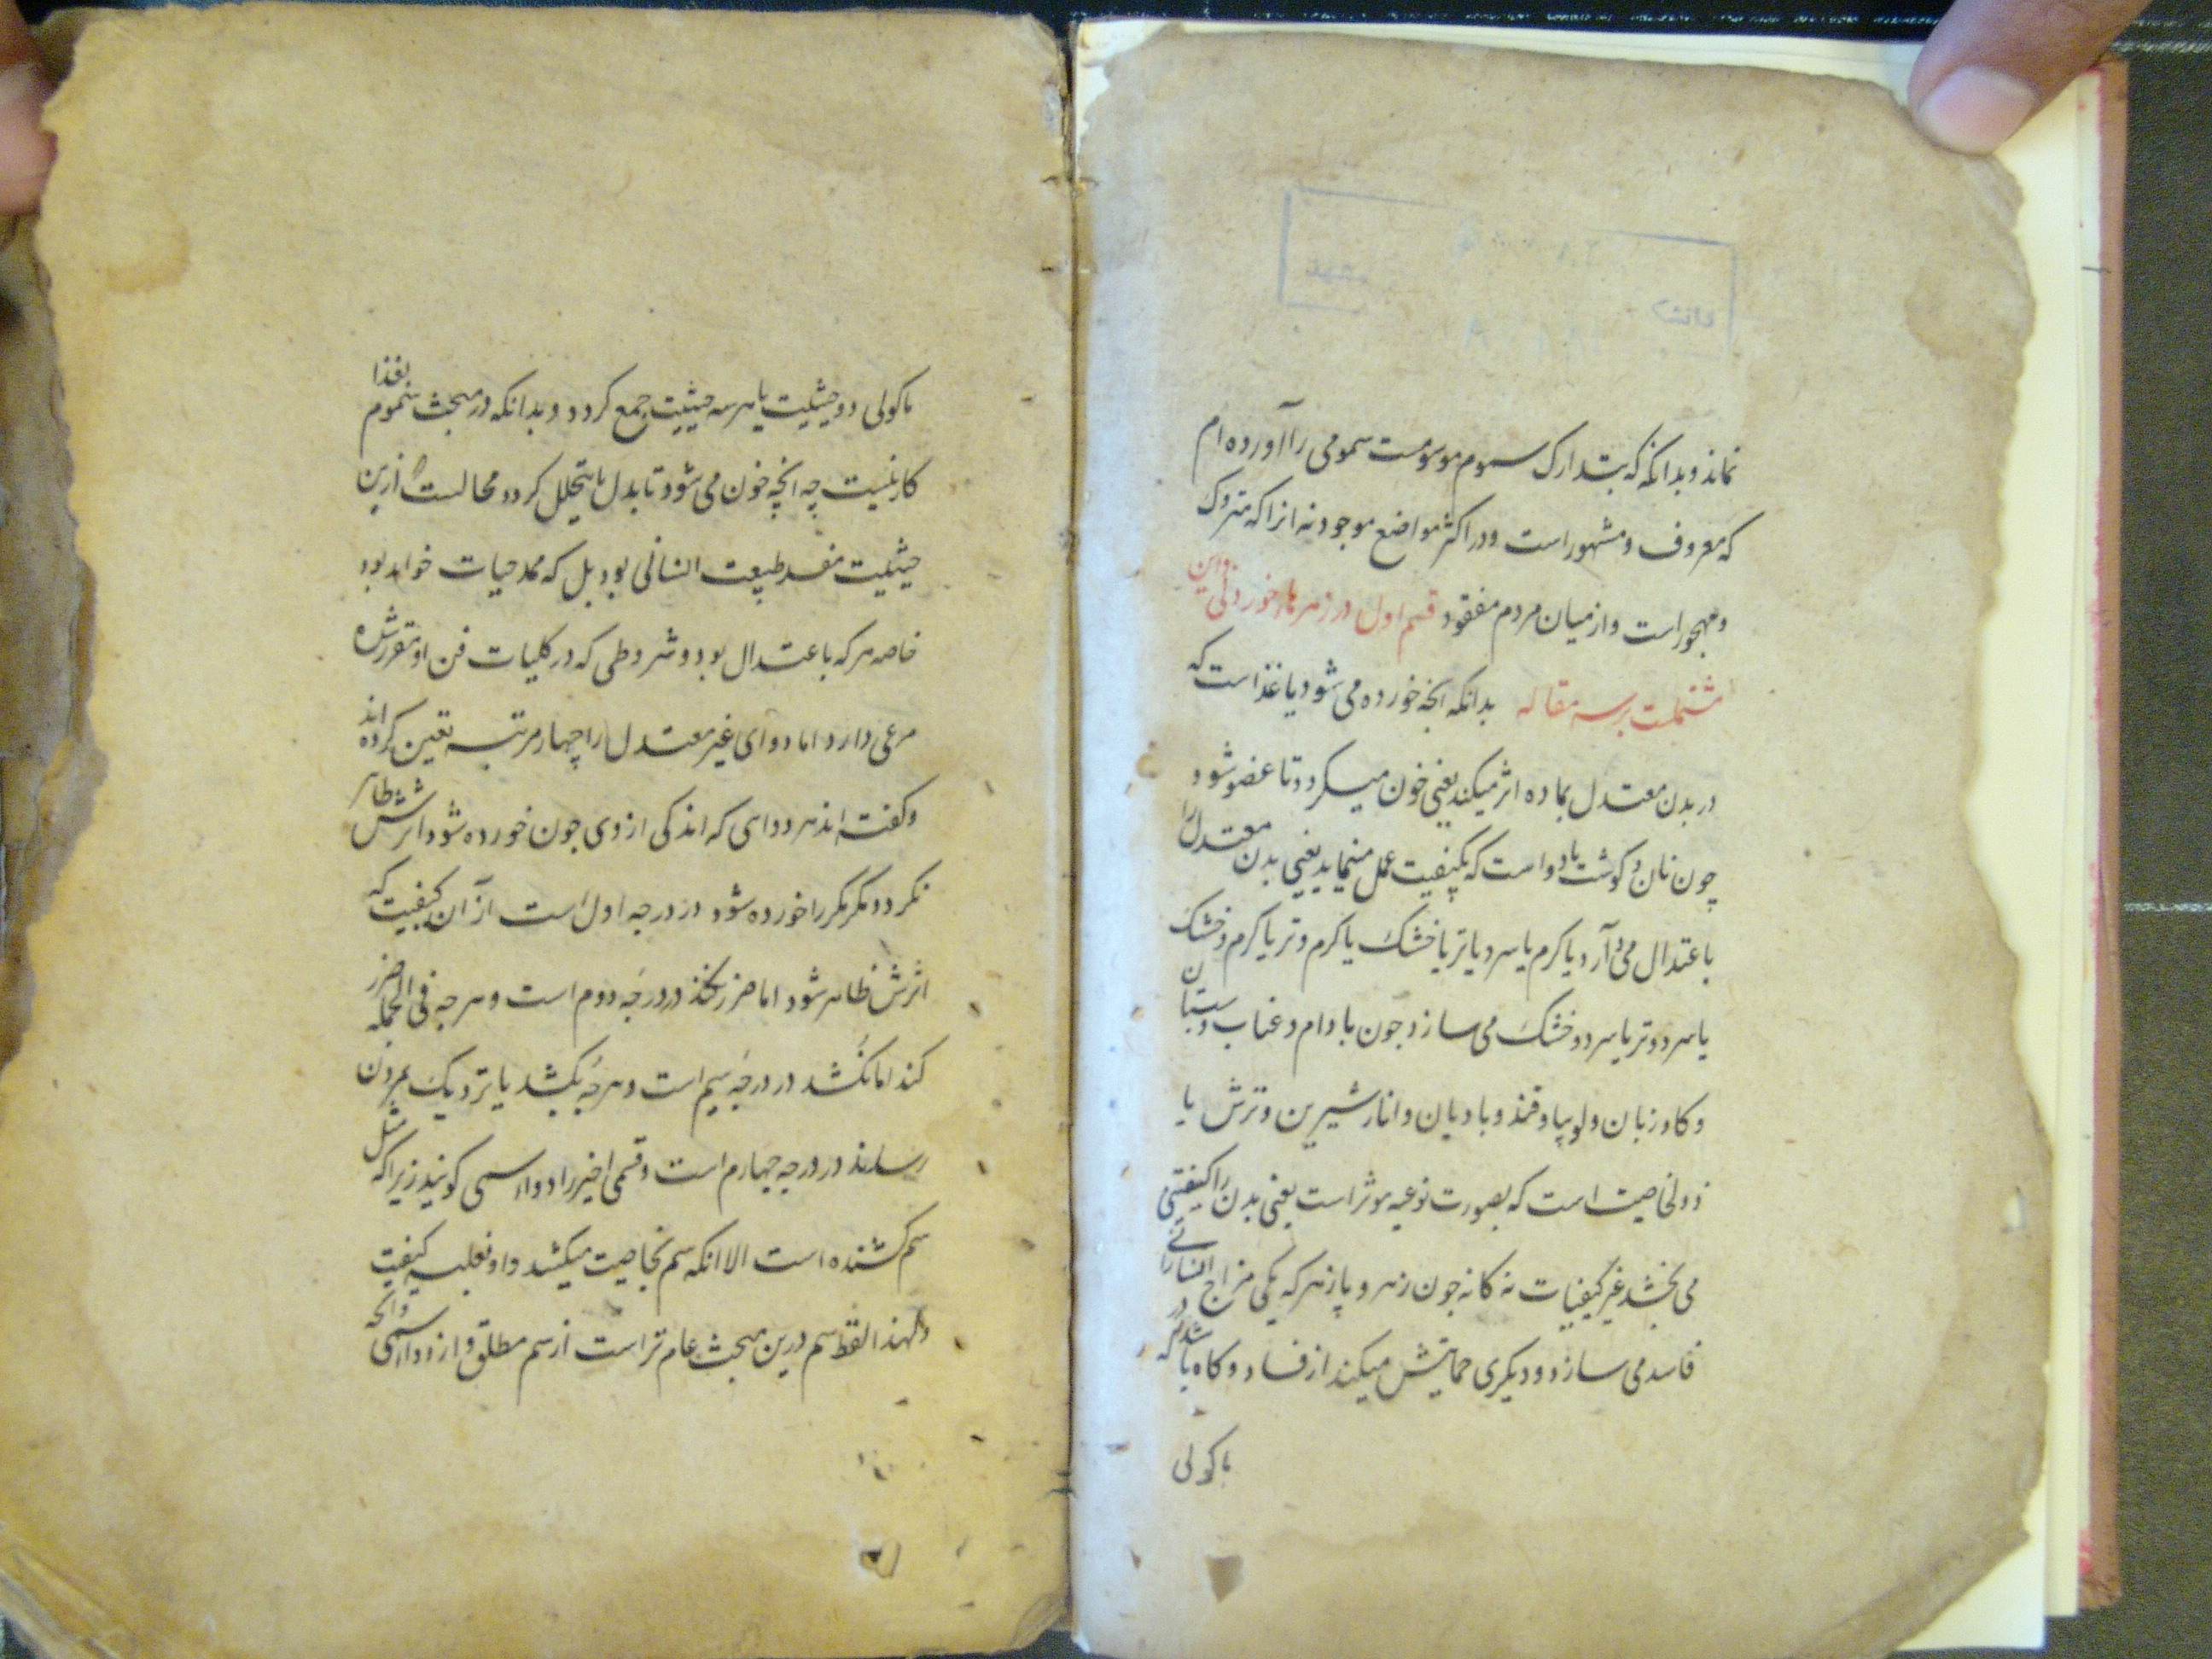 نماند و بدانکه که بتدارک سموم موسومست سمومی را آورده ام
که معروف و مشهور است و در اکثر مواضع موجود نه انرا که متروک
و مهجور است و از میان مردم مفقود قسم اول در زهرهاء خوردنی و این
مشتملست بر سه مقاله بدانکه انچه خورده می شود یا غذا است که
در بدن معتدل بماده اثر میکند یعنی خون میکردد تا عضو شود
چون نان و کوشت یا دوا است که بکیفیت عمل مینماید یعنی بدن معتدل را
باعتدال می آرد یا کرم یا سرد یا تر یا خشک یا کرم و تر یا کرم و خشک
یا سرد و تر یا سرد و خشک می سازد جون بادام و عناب و سپستان
و کاوزبان و لوبیا و قند و بادیان و انار شیرین و ترش یا
ذو الخاصیت است که بصورت نوعیه موثر است یعنی بدن را کیفیتی
می بخشد غیر کیفیات نه کانه جون زهر و پازهر که یکی مزاج انسانی را
فاسد می سازد و دیکری حمایتش میکند از فساد و کاه باشد که در
ماکولی
ماکولی دو حیثیت یا هر سه حیثیت جمع کردد و بدانکه در مبحث سموم بغذا
کار نیست چه انچه خون می شود تا بدل ما یتحلل کردد محالست که ازین
حیثیت مفسد طبیعت انسانی بود بل که ممد حیات خواهد بود
خاصه هر که باعتدال بود و شروطی که در کلیات فن او مقرر شده
مرعی دارد اما دوای غیر معتدل را چهار مرتبه تعین کرده اند
و کفته اند هر دوایی که اندکی از وی جون خورده شود اثرش ظاهر
نکردد مکر مکرر را خورده شود در درجه اول است از آن کیفیت که
اثرش ظاهر شود اما ضرر نکند در درجه دوم است و هر جه فی الجمله ضرر
کند اما نکشد در درجه سیم است و هر جه بکشد یا نزدیک بمردن
رساند در درجه جهارم است و قسمی اخیر را دواء سمی کویند زیرا که مثل
سم کشنده است الا انکه سم بخاصیت میکشد و او بغلبه کیفیت
و لهذا لفظ سم درین مبحث عام تر است از سم مطلق و از دواء سمی و انچه